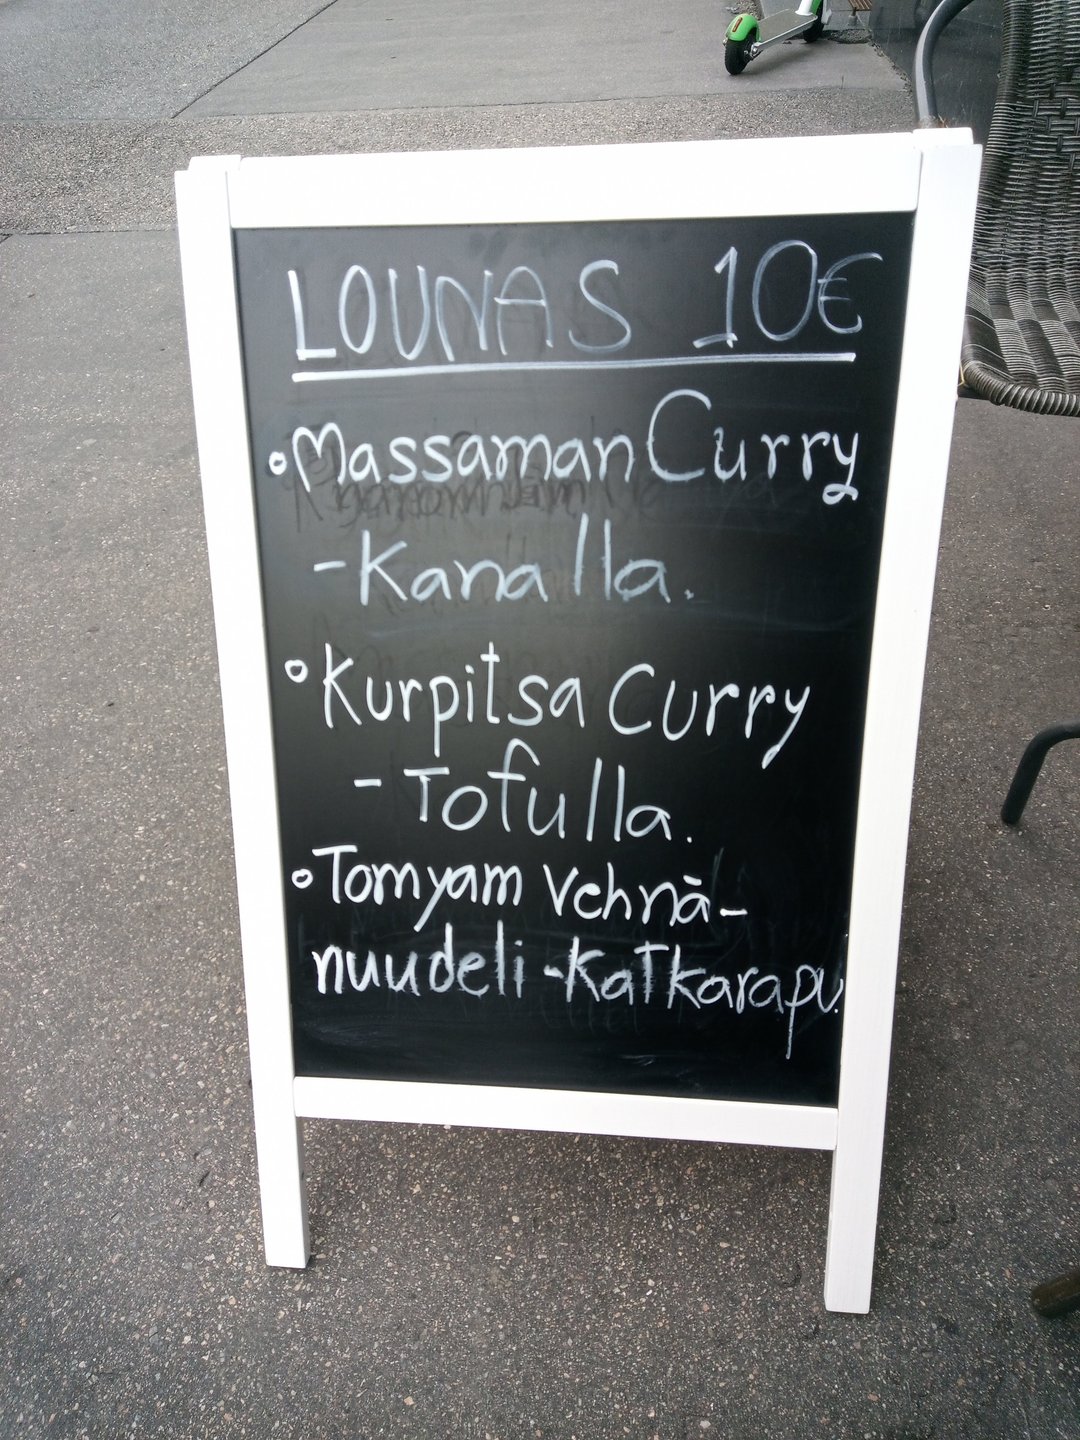 LOUNAS 10€
• Massaman Curry
- Kanalla.
• Kurpitsa Curry
- Tofulla.
• Tomyam Vehnä-
nuudeli - Katkarapu.